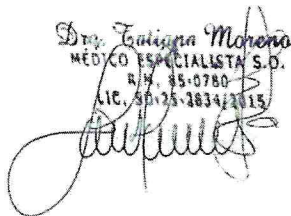 Dra. Tatiana Moreno
MÉDICO ESPECIALISTA S.O.
R.M. 85-0780
LIC. 2834/2015